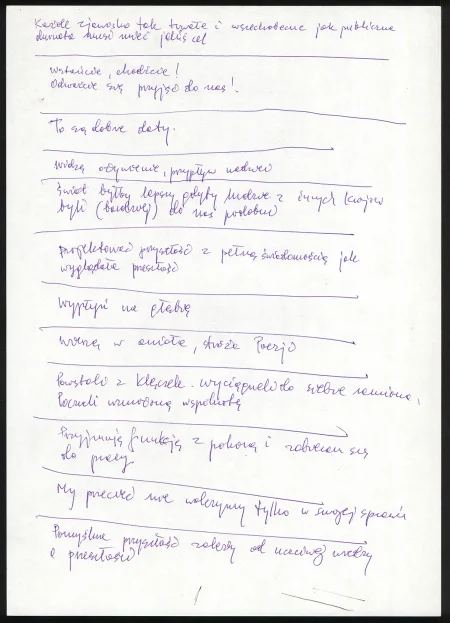 Każde zjawisko tak trwałe i wszechobecne jak publiczna
durnota musi mieć jakiś cel
wstańcie, chodźcie!
Odważcie się przyjść do nas!
To są dobre daty.
widzę ożywienie, przypływ nadziei
świat byłby lepszy gdyby ludzie z innych krajów
byli (bardziej) do nas podobni
projektować przyszłość z pełną świadomością jak
wyglądała przeszłość
Wypłyń na głębię
wierzę w anioła, stróża Poezji
Powstali z klęczek. wyciągnęli do siebie ramiona,
Poczuli wzmożoną wspólnotę
Przyjmuję funkcję z pokorą i zabieram się
do pracy
My przecież nie walczymy tylko w swojej sprawie
Pomyślna przyszłość zależy od uczciwej wiedzy
o przeszłości